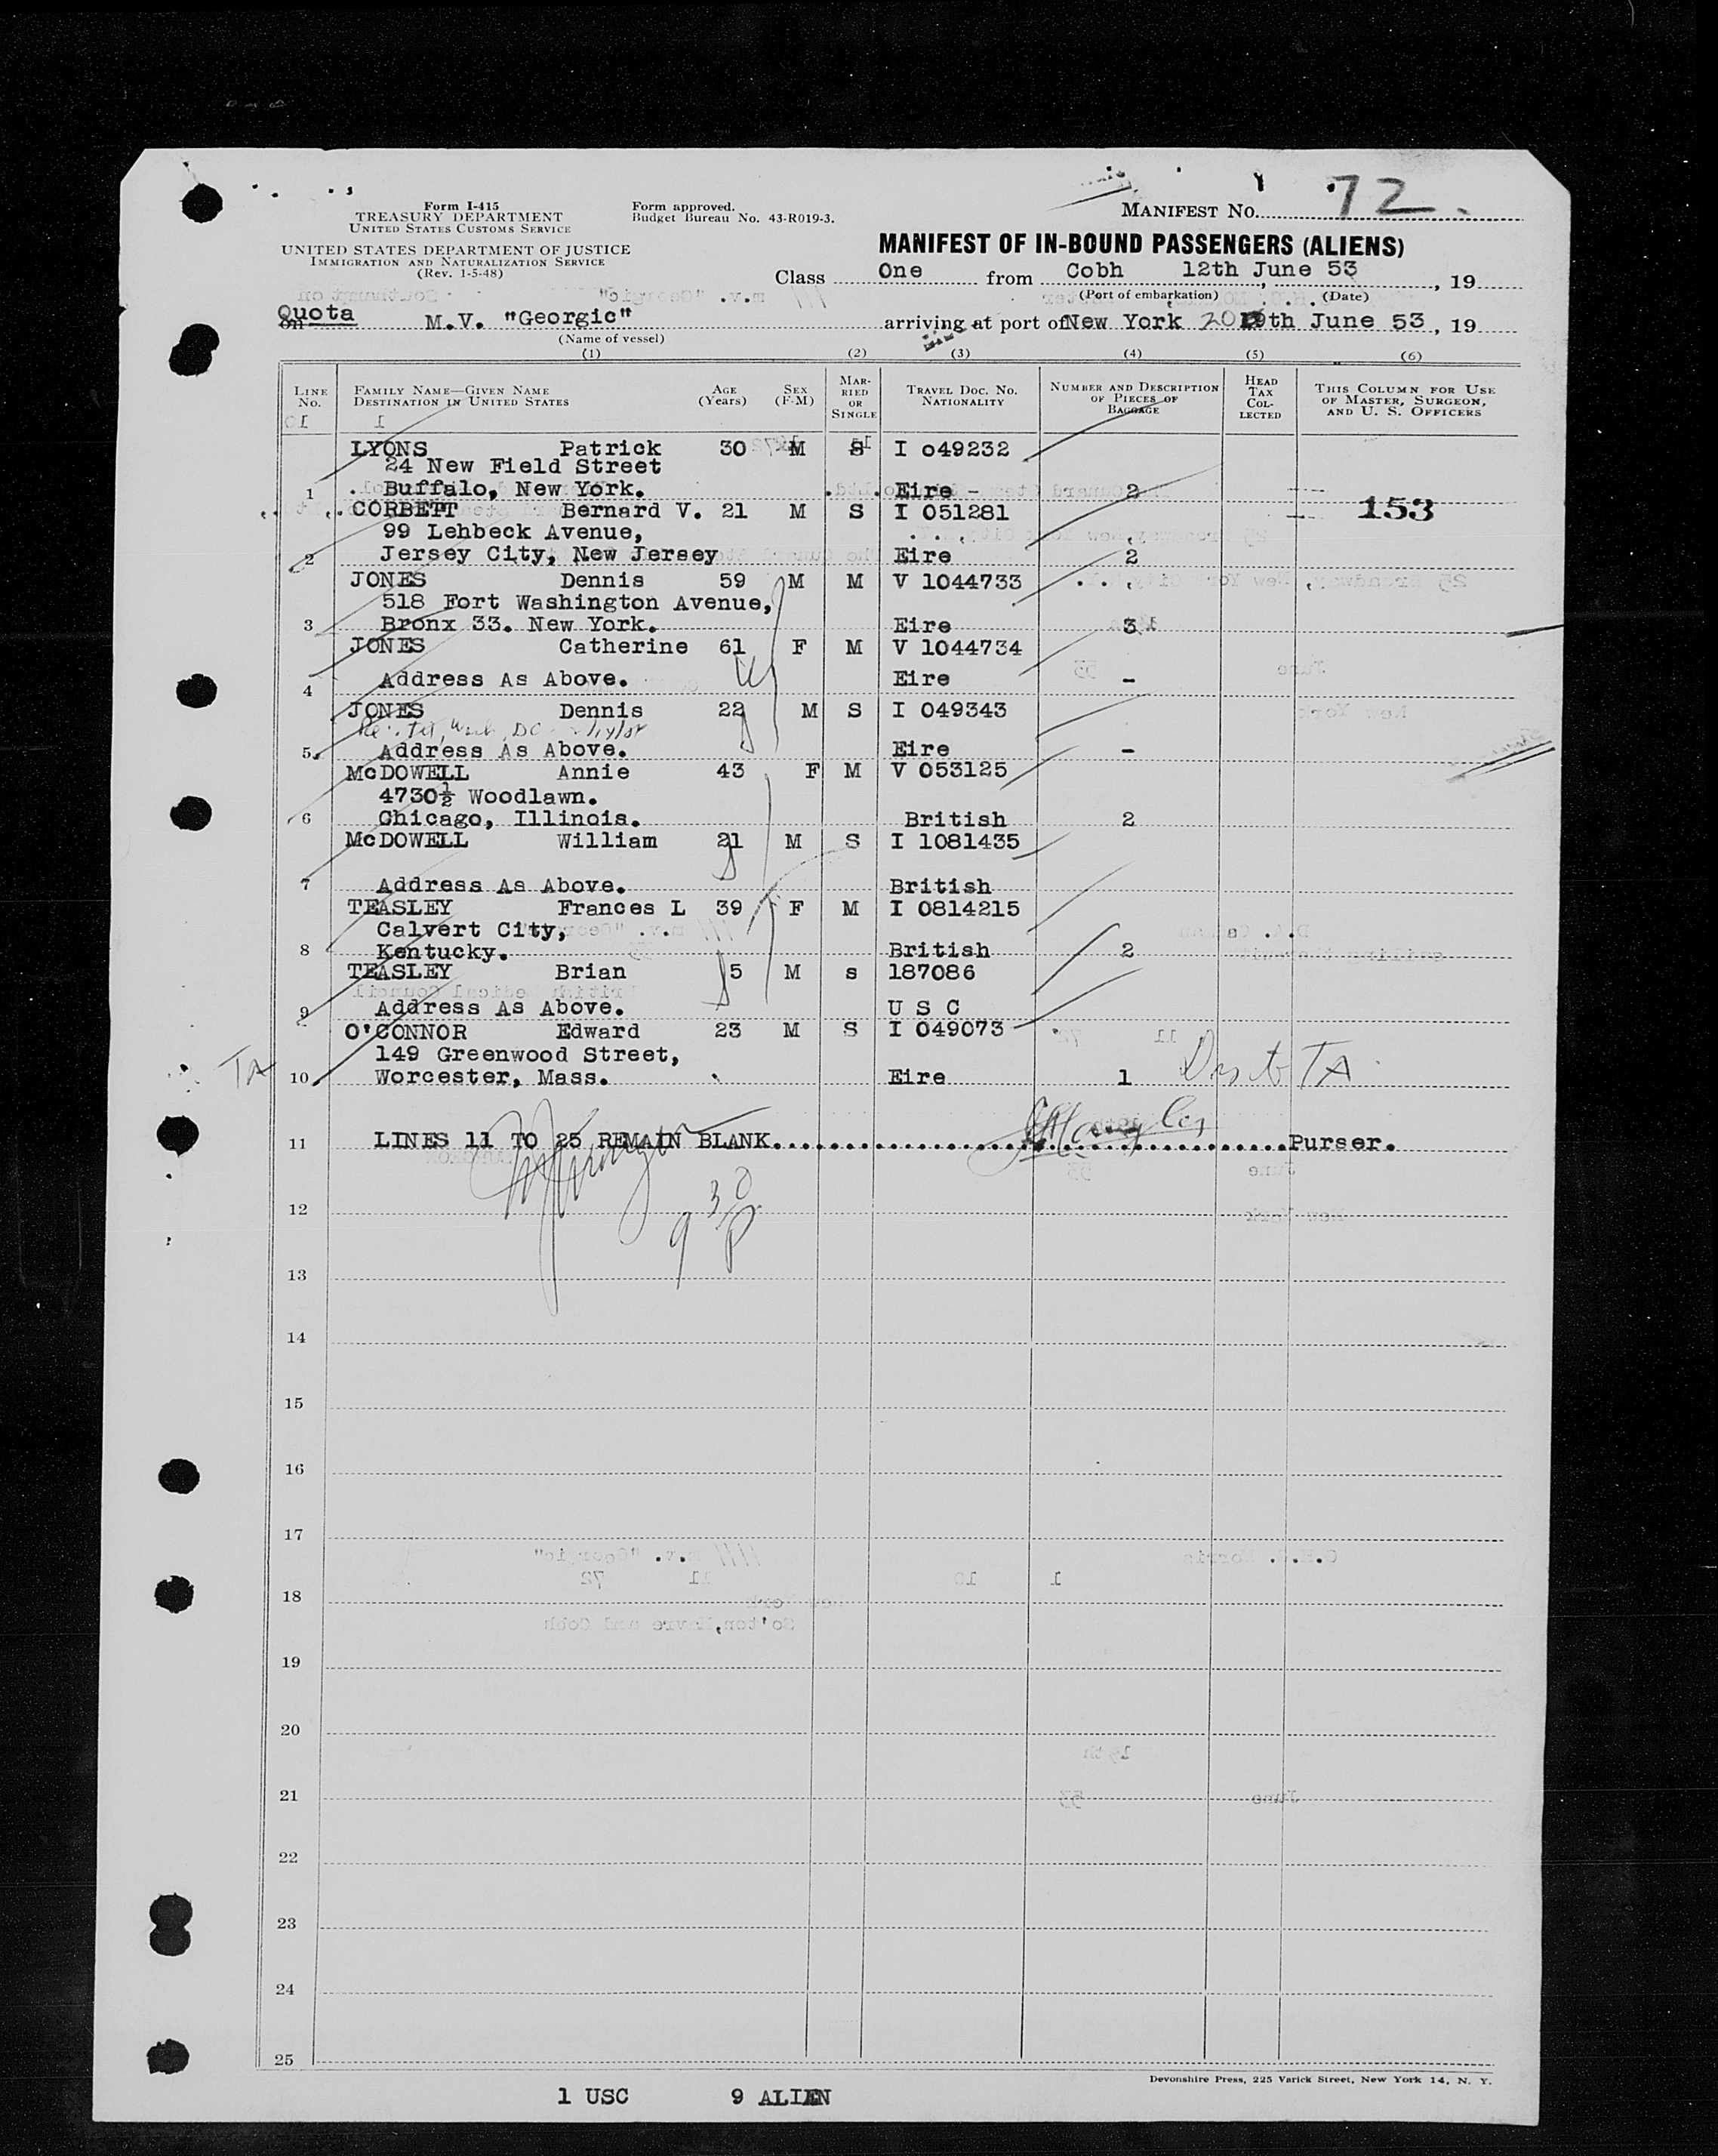 Form I-415
TREASURY DEPARTMENT
UNITED STATES CUSTOMS SERVICE
UNITED STATES DEPARTMENT OF JUSTICE
IMMIGRATION AND NATURALIZATION SERVICE
(Rev. 1-5-48)
Form approved.
Budget Bureau No. 43-R019-3.
MANIFEST NO. 72.
MANIFEST OF IN-BOUND PASSENGERS (ALIENS)
Class One from Cobh 12th June 53, 19
(Port of embarkation) (Date)
Quota
on M.V. "Georgic" arriving at port of New York 20th June 53, 19
(Name of vessel)
(1) (2) (3) (4) (5) (6)
LINE NO. FAMILY NAME—GIVEN NAME DESTINATION IN UNITED STATES AGE (Years) SEX (F-M) MARRIED OR SINGLE TRAVEL DOC. NO. NATIONALITY NUMBER AND DESCRIPTION OF PIECES OF BAGGAGE HEAD TAX COLLECTED THIS COLUMN FOR USE OF MASTER, SURGEON, AND U. S. OFFICERS
LYONS Patrick 30 M S I o49232
24 New Field Street
1 Buffalo, New York. Eire - 2
153
CORBETT Bernard V. 21 M S I 051281
99 Lehbeck Avenue,
2 Jersey City, New Jersey Eire 2
JONES Dennis 59 M M V 1044733
518 Fort Washington Avenue,
3 Bronx 33. New York. Eire 3
JONES Catherine 61 F M V 1044734
4 Address As Above. Eire -
JONES Dennis 22 M S I 049343
5 Address As Above. Eire -
McDOWELL Annie 43 F M V 053125
4730½ Woodlawn.
6 Chicago, Illinois. British 2
McDOWELL William 21 M S I 1081435
7 Address As Above. British
TEASLEY Frances L 39 F M I 0814215
Calvert City,
8 Kentucky. British 2
TEASLEY Brian 5 M s 187086
9 Address As Above. U S C
O'CONNOR Edward 23 M S I 049073
149 Greenwood Street,
TA 10 Worcester, Mass. Eire 1 TA
11 LINES 11 TO 25 REMAIN BLANK. Purser.
9 30 P
12
13
14
15
16
17
18
19
20
21
22
23
24
25
Devonshire Press, 225 Varick Street, New York 14, N. Y.
1 USC 9 ALIEN